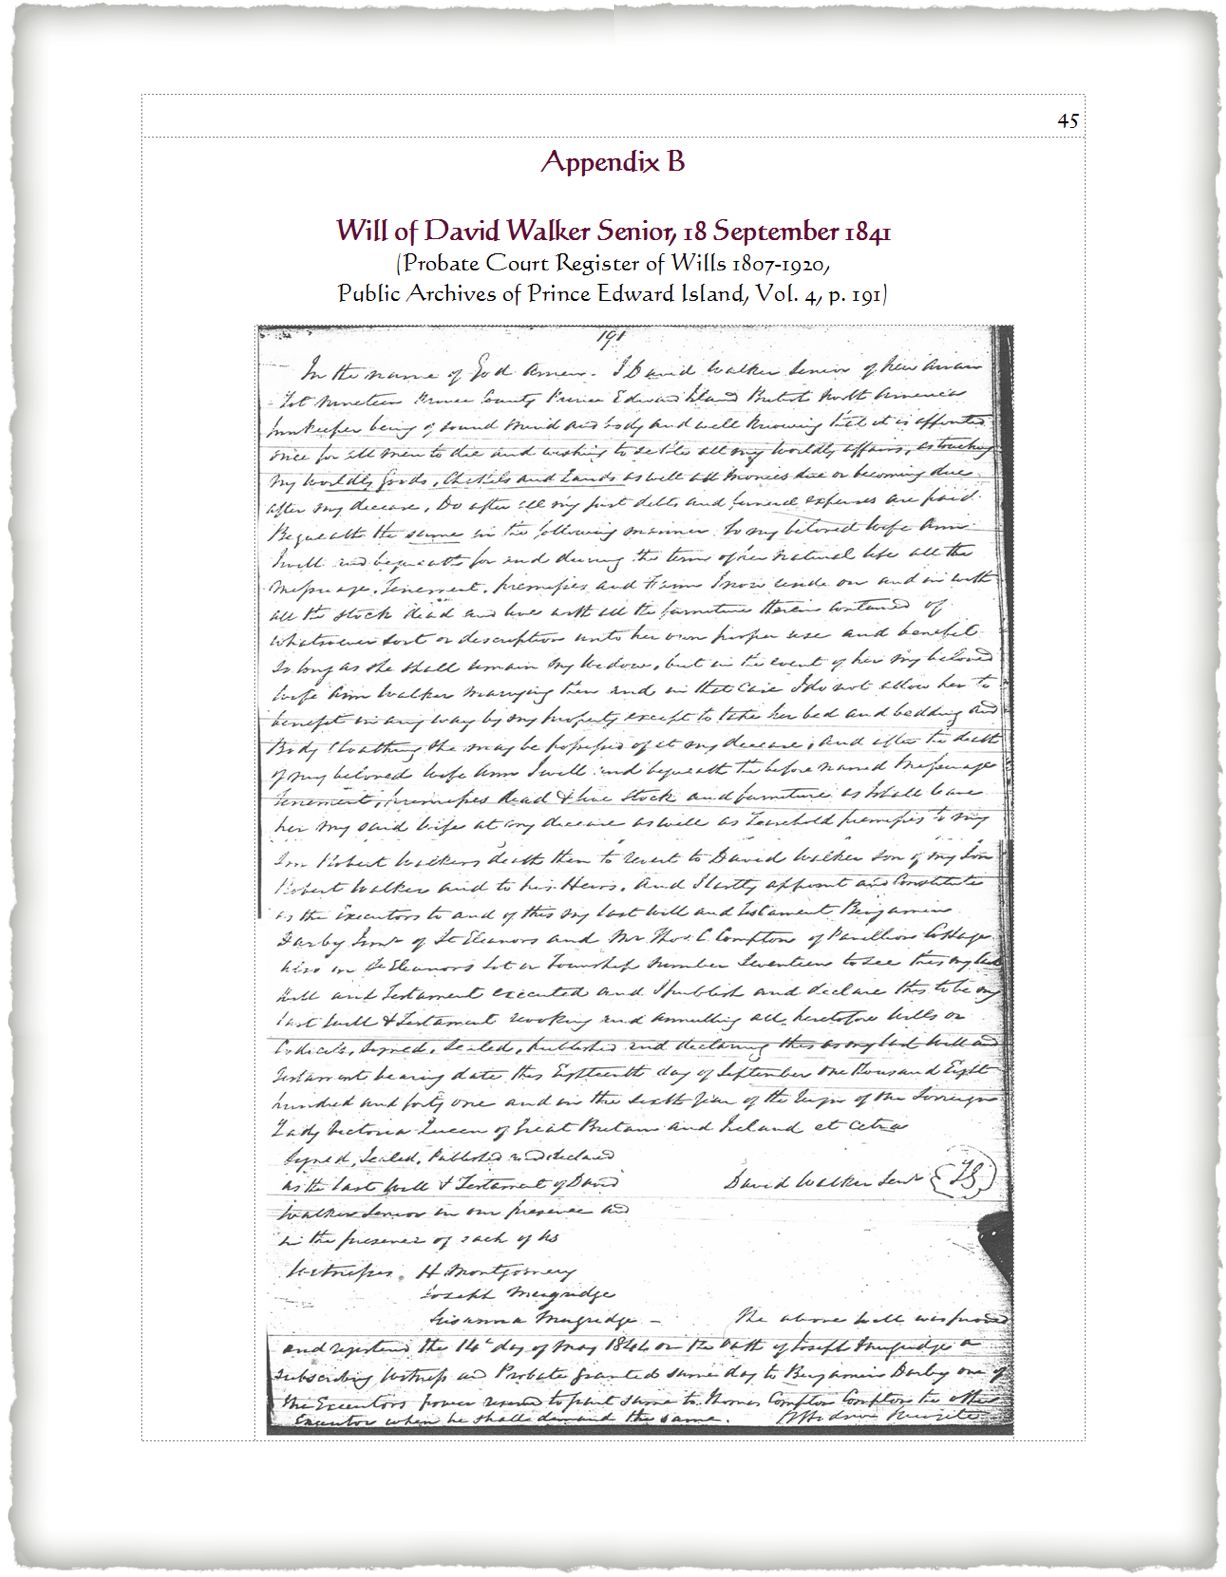 45
Appendix B
Will of David Walker Senior, 18 September 1841
(Probate Court Register of Wills 1807-1920,
Public Archives of Prince Edward Island, Vol. 4, p. 191)
191
In the name of God Amen. I David Walker Senior of New Annan
Lot Nineteen Prince County Prince Edward Island British North America
Innkeeper being of sound mind and body and well knowing that it is appointed
once for all men to die and wishing to settle all my worldly affairs, as touching
my worldly goods, Chattels and Lands as well all monies due or becoming due
after my decease, Do after all my just debts and funeral expenses are paid
Bequeath the same in the following manner. To my beloved wife Ann
I will and bequeath for and during the term of her natural life all the
Messuage, Tenement, premises and Farm I now reside on and in with
all the stock dead and live with all the furniture therein contained of
whatsoever sort or description unto her own proper use and benefit
so long as she shall remain my Widow, but in the event of her my beloved
wife Ann Walker marrying then and in that case I do not allow her to
benefit in any way by my property except to take her bed and bedding and
Body Cloathing she may be possessed of at my decease, and after the death
of my beloved wife Ann I will and bequeath the before named Messuage
Tenement, premises dead & live stock and furniture as I shall leave
her my said wife at my decease as well as Leasehold premises to my
Son Robert Walkers death then to revert to David Walker son of my Son
Robert Walker and to his Heirs. And I lastly appoint and Constitute
as the Executors to and of this my last will and Testament Benjamin
Darby Junr of St Eleanors and Mr Thos. C. Compton of Pavillion Cottage
also in St Eleanors Lot or Township Number Seventeen to see this my last
Will and Testament executed and I publish and declare this to be my
last Will & Testament revoking and annulling all heretofore Wills or
Codicils, Signed, Sealed, Published and declaring this as my last Will and
Testament bearing date this Eighteenth day of September One thousand Eight
hundred and forty one and in the sixth Year of the Reign of Our Sovereign
Lady Victoria Queen of Great Britain and Ireland et Cetra
Signed, Sealed, Published and declared
as the last Will & Testament of David
Walker Senior in our presence and
in the presence of each of us
David Walker Senr LS
Witnesses. H Montgomery
Joseph Mugridge
Susanna Mugridge - The above Will was proved
and registered the 14th day of May 1844 on the Oath of Joseph Mugridge a
subscribing Witness and Probate granted same day to Benjamin Darby one of
the Executors power reserved to grant same to Thomas Compton Compton the other
Executor when he shall demand the same.